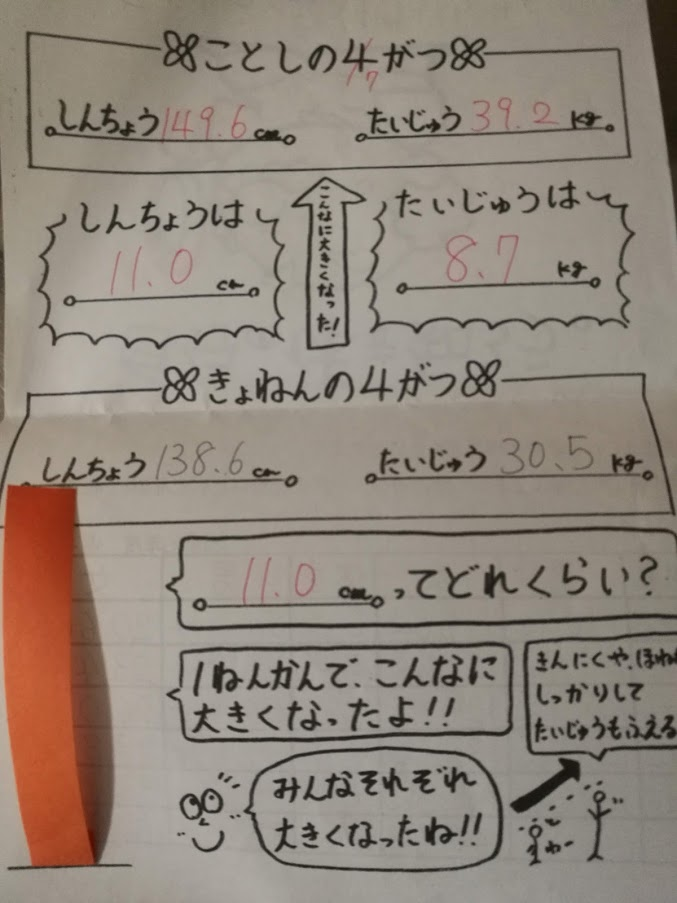 ことしの4がつ
7
しんちょう149.6cm
たいじゅう39.2kg
しんちょうは
11.0cm
こんなに大きくなった!
たいじゅうは
8.7kg
きょねんの4がつ
しんちょう138.6cm
たいじゅう30.5kg
11.0cmってどれくらい?
1ねんかんで、こんなに
大きくなったよ!!
きんにくや、ほね
しっかりして
たいじゅうもふえる
みんなそれぞれ
大きくなったね!!